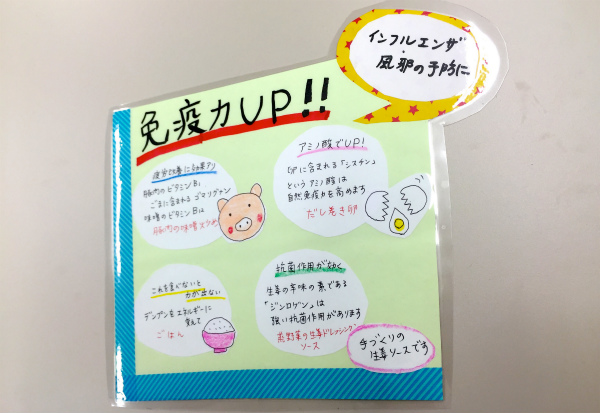 インフルエンザ
・
風邪の予防に
免疫力UP!!
疲労改善に効果アリ
豚肉のビタミンB₁
ごまに含まれるゴマリグナン
味噌のビタミンB₁は
豚肉の味噌
アミノ酸でUP!
卵に含まれる「シスチン」
というアミノ酸は
自然免疫力を高めます
だし巻き卵
これを食べないと
力が出ない
デンプンをエネルギーに
変えて
ごはん
抗菌作用が効く
生姜の辛味の素である
「ジンロゲン」は
強い抗菌作用があります
蒸野菜の生姜ドレッシング
ソース
手づくりの
生姜ソースです